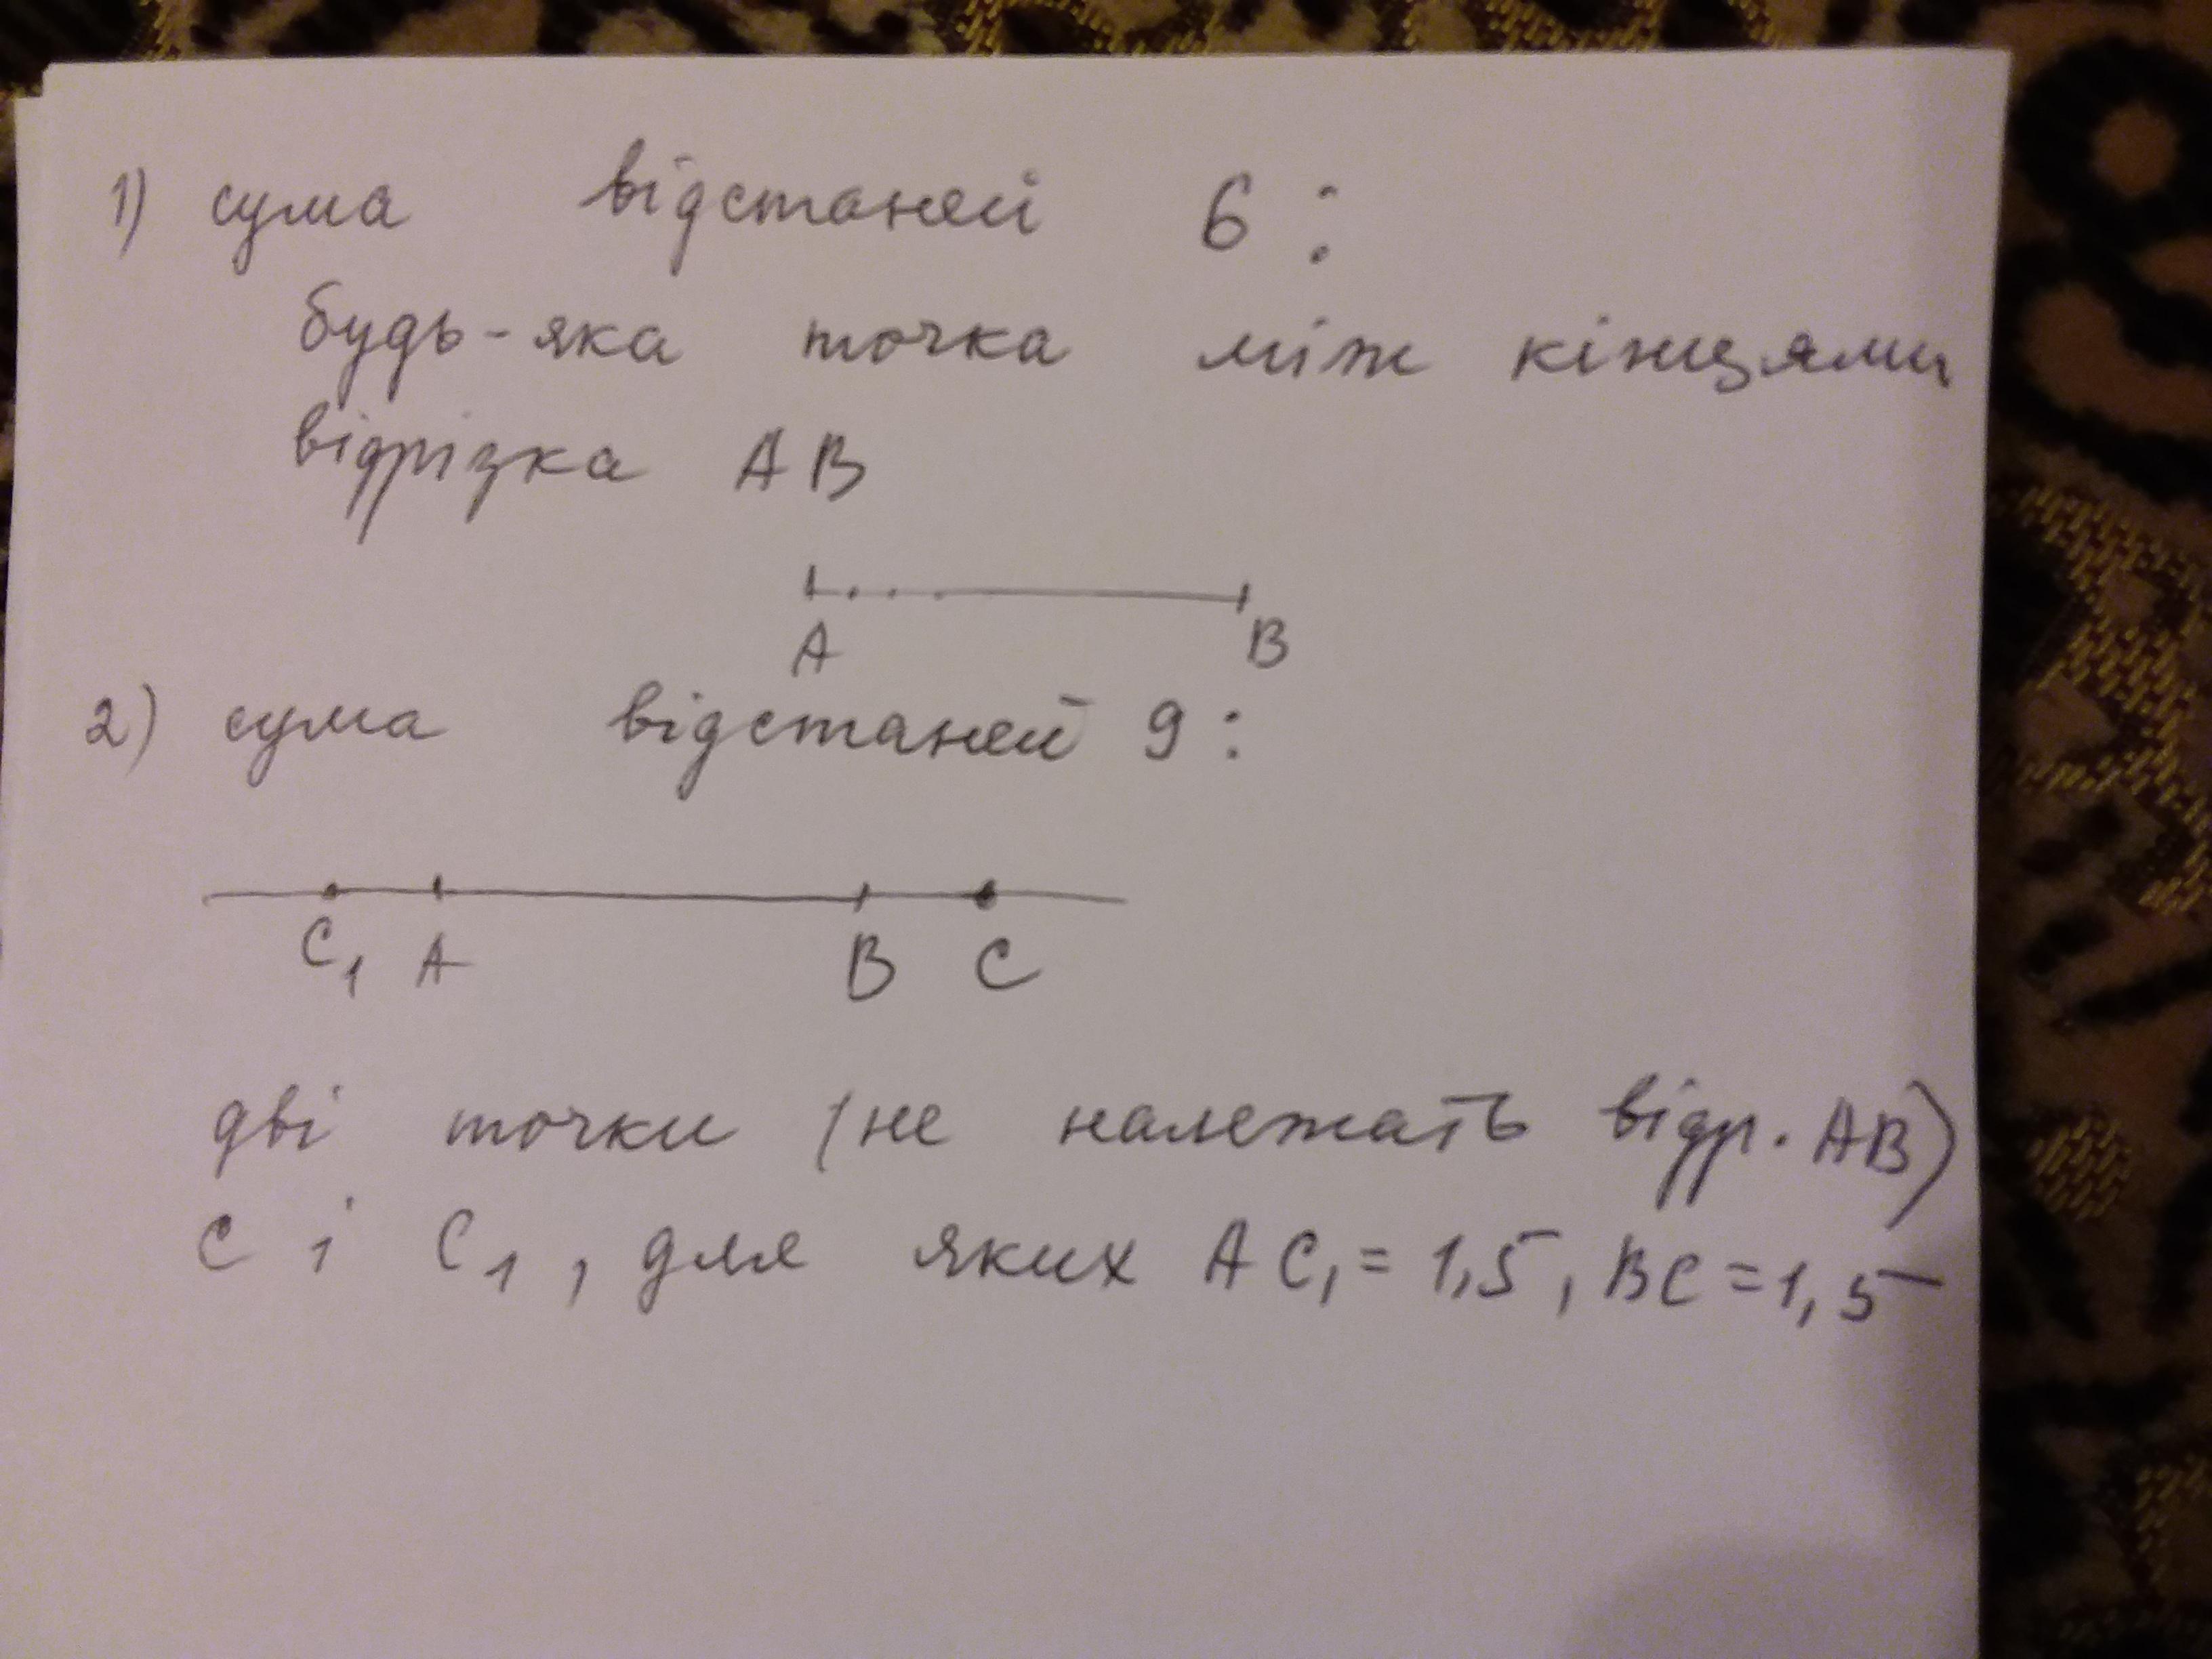 1) сума відстаней 6 :
будь-яка точка між кінцями
відрізка AB
A B
2) сума відстаней 9 :
C₁ A B C
дві точки (не належать відр. AB)
C і C₁, для яких AC₁ = 1,5, BC = 1,5